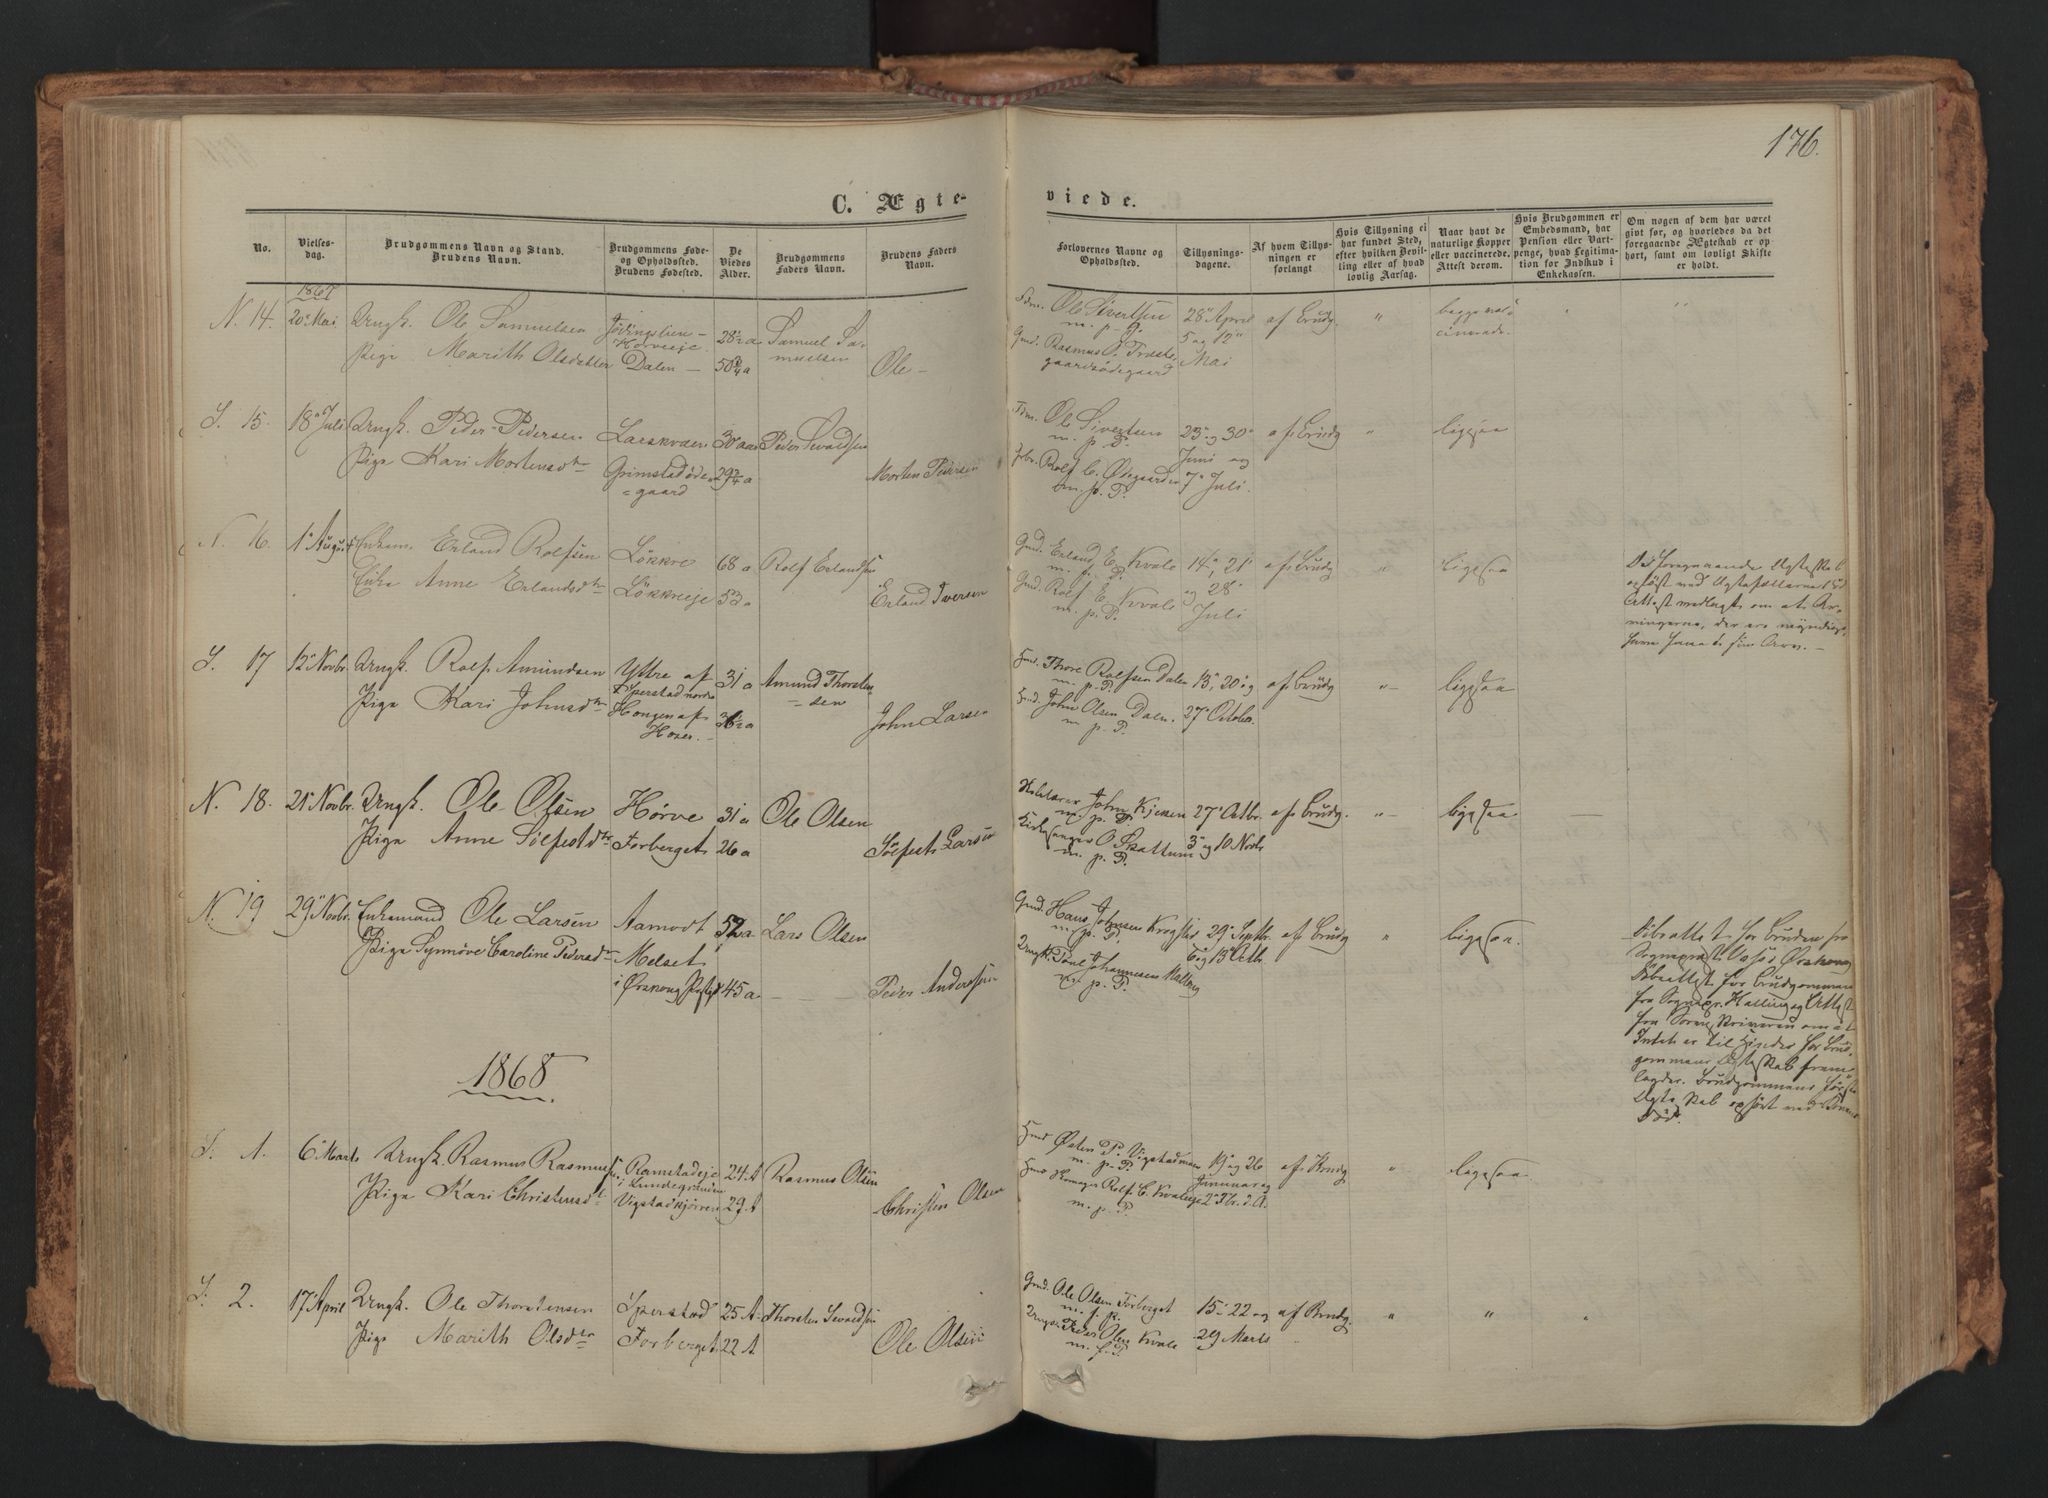 176.
C. Ægteviede.
No.
Vielsesdag.
Brudgommens Navn og Stand.
Brudens Navn.
Brudgommens Føde-
og Opholdssted.
Brudens Fødested.
De
Viedes
Alder.
Brudgommens
Faders Navn.
Brudens Faders
Navn.
Forlovernes Navne og
Opholdssted.
Tillysnings-
dagene.
Af hvem Tillys-
ningen er
forlangt
Hvis Tillysning ei
har fundet Sted,
efter hvilken Bevil-
ling eller af hvad
lovlig Aarsag.
Naar havt de
naturlige Kopper
eller vaccinerede.
Attest derom.
Hvis Brudgommen er
Embedsmand, har
Pension eller Vart-
penge, hvad Legitima-
tion for Indskud i
Enkekassen.
Om nogen af dem har været
givt før, og hvorledes da det
foregaaende Ægteskab er op-
hørt, samt om lovligt Skifte
er holdt.
1867
N. 14. 20 Mai Ungk. Ole Samuelsen
Pige Marith Olsdatter
Hørveeje
Dalen
28½ a
50¾ a
Samuel Sa-
muelsen
Ole
Ole Sivertsen
m. p. P.
Gmd. Rasmus O.
28 April
5 og 12
Mai
af Brudg.
begge vac
cinerede
S. 15. 18 Juli Ungk. Peder Pedersen
Pige Kari Mortensdtr
Grimstadøde
gaard
30 aar
29¾ a
Peder Sevaldsen
Morten Pedersen
Ole Sivertsen
m. p. P.
Rolf C. Ødegaarden
m. p. P.
23 og 30
Juni og
7 Juli.
af Brudg
ligesaa
N. 16. 1 August Enkem. Erland Rolfsen
Enke Anne Erlandsdtr
Løkkre
Løkkreeje
68 a
53 a
Rolf Erlandsen
Erland Iversen
Gmd. Erland E. Kvale
m. p. P.
Gmd. Rolf E. Kvale
m. p. P.
14, 21
og 28
Juli
af Brudg
ligesaa
Det foregaaende Ægteskab
opløst ved Ægtefællernes Død
Attest medlagt om at Ar-
vingerne, der ere myndige,
have faaet sin Arv.
S. 17 12 Novbr. Ungk. Rolf Amundsen
Pige Kari Johnsdtr
Yttre af
Sperstad nordre
Haugen af
31 a
Amund Thorsten-
sen
John Larsen
Thore Rolfsen Dalen
m. p. P.
John Olsen Dalen.
m. p. P.
13, 20 og
27 October.
af Brudg
ligesaa
N. 18. 21 Novbr. Ungk. Ole Olsen
Pige Anne Sølfestdtr
Hørve
Forberget
31 a
26 a
Ole Olsen
Sølfest Larsen
John Kjensen
m. p. P.
Kirkesanger O. Skattum
m. p. P.
27 Octbr.
3 og 10 Novbr
af Brudg.
ligesaa
N. 19 29 Novbr. Enkemand Ole Larsen
Pige Synnøve Caroline Pedersdtr
Aamodt
Melset
i Ørskoug Præstegj
52 a
45 a
Lars Olsen
Peder Anderssen
Gmd. Hans Johnsen Krogstad
m. p. P.
Ungk. Poul Johannesen
m. p. P.
29 Septbr.
6 og 13 Octbr.
af Brudg
ligesaa.
Døbeattest for Bruden fra
Sognepræst Ørskoug
Døbeattest for Brudgommen
fra Sognepr. Halling og Attest
fra Sorenskriveren om at
Intet er til Hinder for Brud-
gommens Ægteskab frem-
lagdes. Brudgommens første
Ægteskab ophørt ved Konens
Død.
1868
S. 1. 6 Marts Ungk. Rasmus Rasmussen
Pige Kari Christensdtr
Ramstadeje
i Lundegrenden
24 A
29 A
Rasmus Olsen
Christen Olsen
Østen P. Vigstadmoen
m. p. P.
Rolf C. Kvaleeje
m. p. P.
19 og 26
Januar og
2 Fbr. d. A.
af Brudg
ligesaa
S. 2. 17 April Ungk. Ole Thorstensen
Pige Marith Olsdtr
Sperstad
Forberget
25 A.
22 A
Thorsten Sevaldsen
Ole Olsen
Gmd. Ole Olsen Forberget
m. p. P.
Ungk. Peder Olsen Kvale
m. p. P.
15, 22 og
29 Marts
af Brudg.